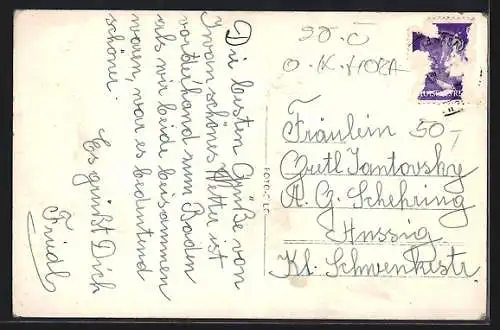 Die besten Grüße von
hier schönes Wetter ist
vorderhand zum Baden
als wir beide beisammen
waren, war es bedeutend
schöner.
Es grüßt Dich
Friedl
Fräulein
Gretl Jantovsky
A. G. Schehring
Aussig
Kl. Schwenkestr
50,-